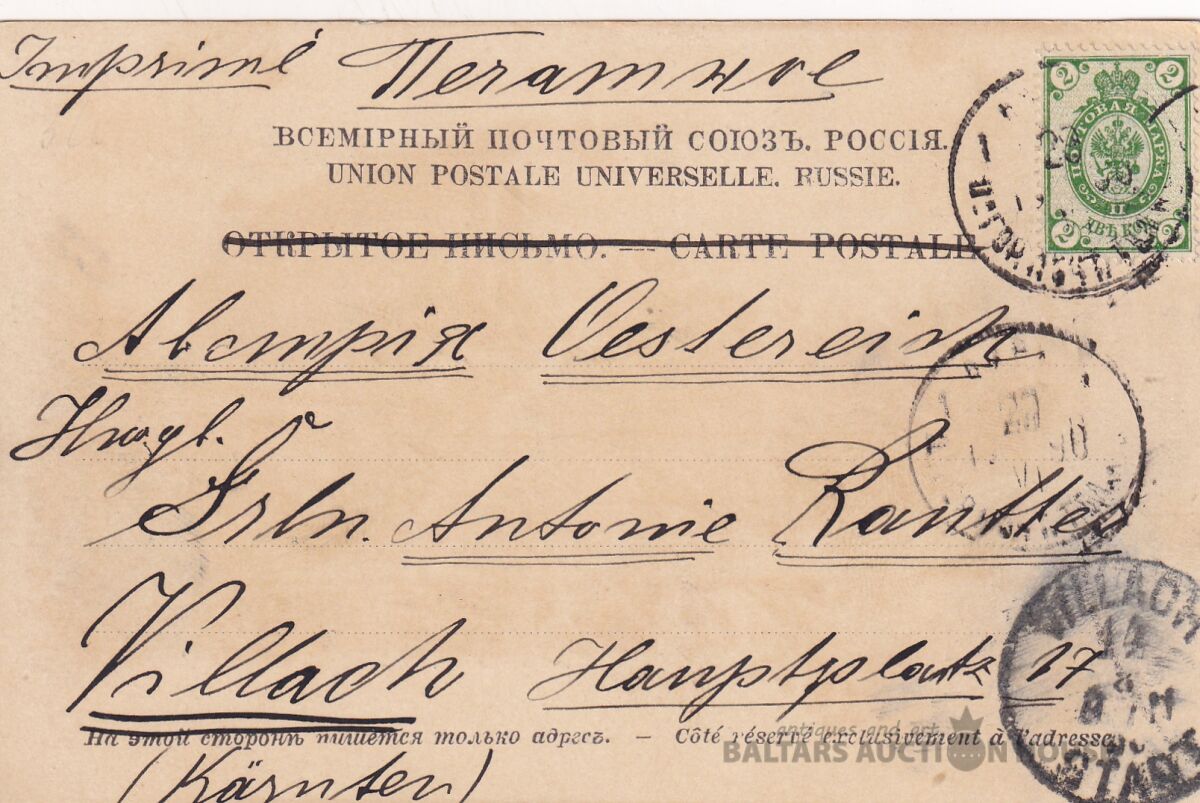 Imprimé Печатное
ВСЕМІРНЫЙ ПОЧТОВЫЙ СОЮЗЪ. РОССІЯ.
UNION POSTALE UNIVERSELLE. RUSSIE.
ОТКРЫТОЕ ПИСЬМО. — CARTE POSTALE
2 2
ПОЧТОВАЯ МАРКА
ДВѢ КОП.
2 2
Австрія Oestereich
Frln. Antonie
Villach Hauptplatz 17
На этой сторонѣ пишется только адресъ. — Côté réservé exclusivement à l'adresse.
(Kärnten)
VILLACH
STADT
antiques and art
BALTARS AUCTION HOUSE